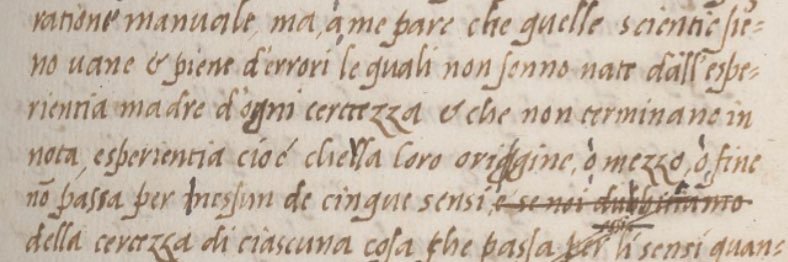 ratione manuale, ma, à me pare che quelle scientie sie=
no uane & piene d'errori le quali non sonno nate dall'espe=
rientia madre d'ogni certezza & che non terminano in
nota, esperientia cioé che la loro origgine, ò mezzo, ò fine
nō passa per nessun de cinque sensi, e se noi dubbitiamo
della certezza di ciascuna cosa che passa per li sensi quan=